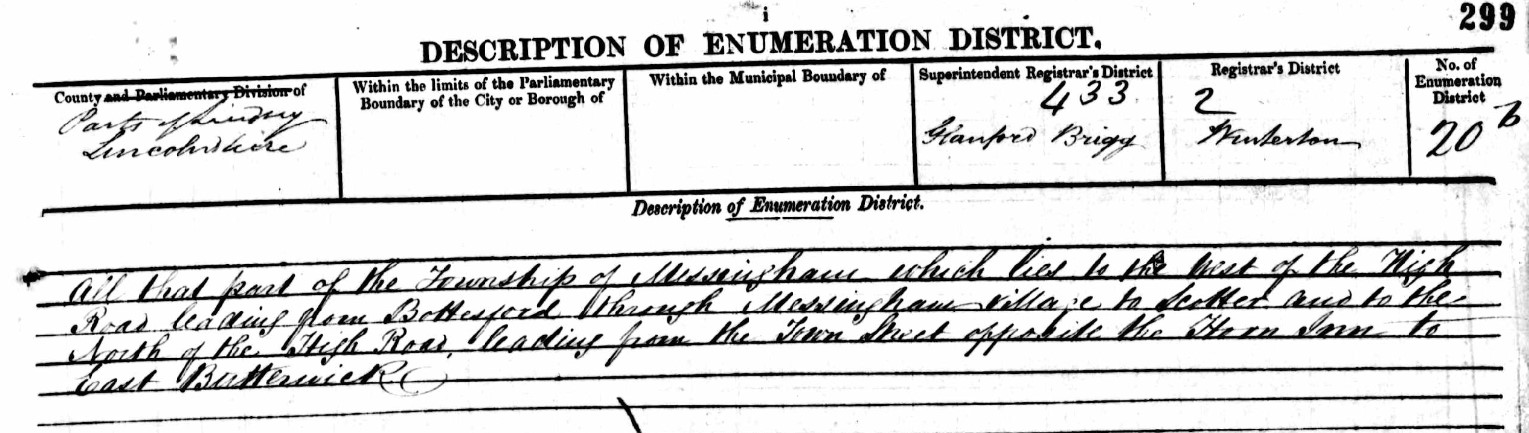 i
299
DESCRIPTION OF ENUMERATION DISTRICT.
County and Parliamentary Division of
Parts of Lindsey
Lincolnshire
Within the limits of the Parliamentary
Boundary of the City or Borough of
Within the Municipal Boundary of
Superintendent Registrar's District
433
Glanford Brigg
Registrar's District
2
Winterton
No. of
Enumeration
District
20 b
Description of Enumeration District.
All that part of the Township of Messingham which lies to the West of the High
Road leading from Bottesford through Messingham village to Scotter and to the
North of the High Road, leading from the Town Street opposite the Horn Inn to
East Butterwick